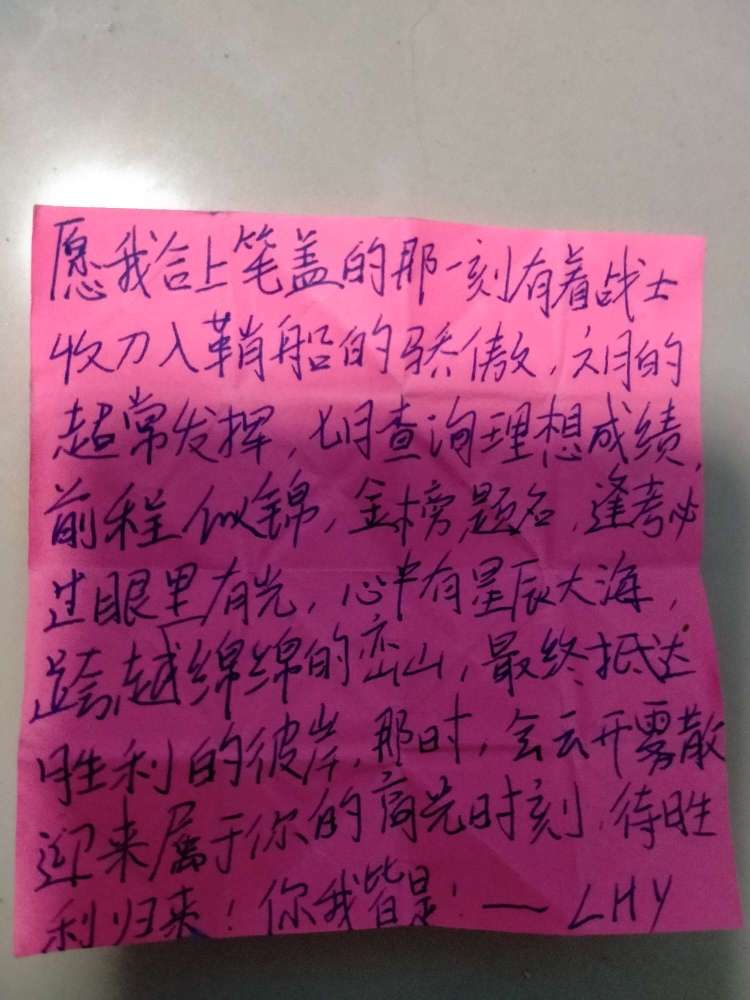 愿我合上笔盖的那一刻有着战士
收刀入鞘船的骄傲，六月的
超常发挥，七月查询理想成绩，
前程似锦，金榜题名，逢考必
过眼里有光，心中有星辰大海，
跨越绵绵的峦山，最终抵达
胜利的彼岸，那时，会云开雾散
迎来属于你的高光时刻，待胜
利归来！你我皆是！— LHY